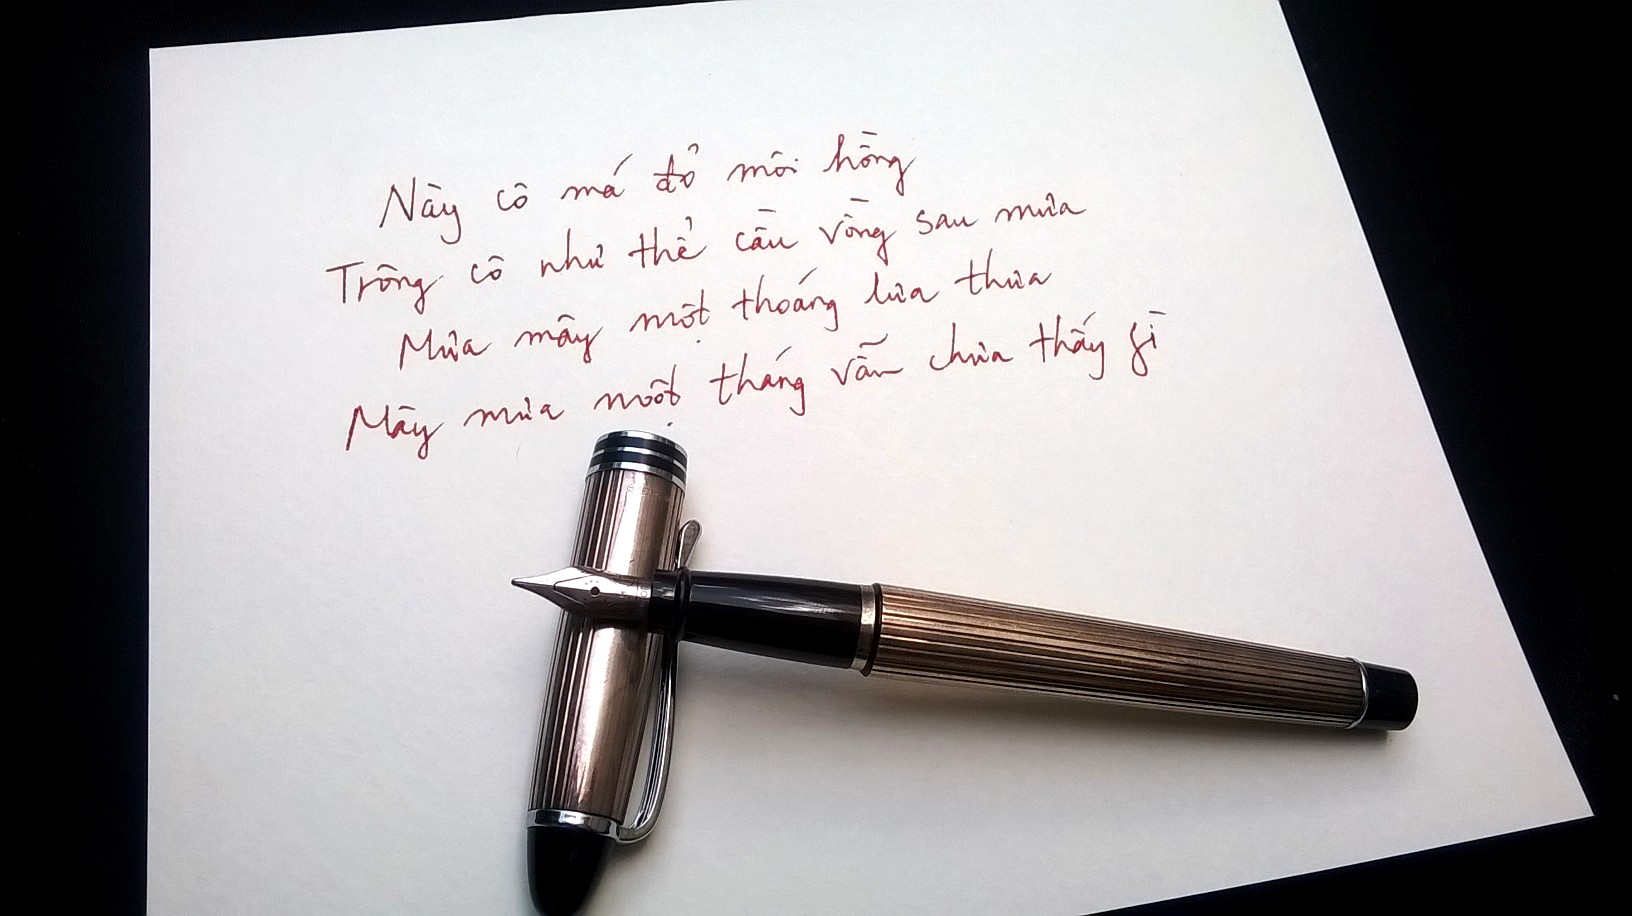 Này cô má đỏ môi hồng
Trông cô như thể cầu vồng sau mưa
Mưa mây một thoáng lưa thưa
Mây mưa một tháng vẫn chưa thấy gì